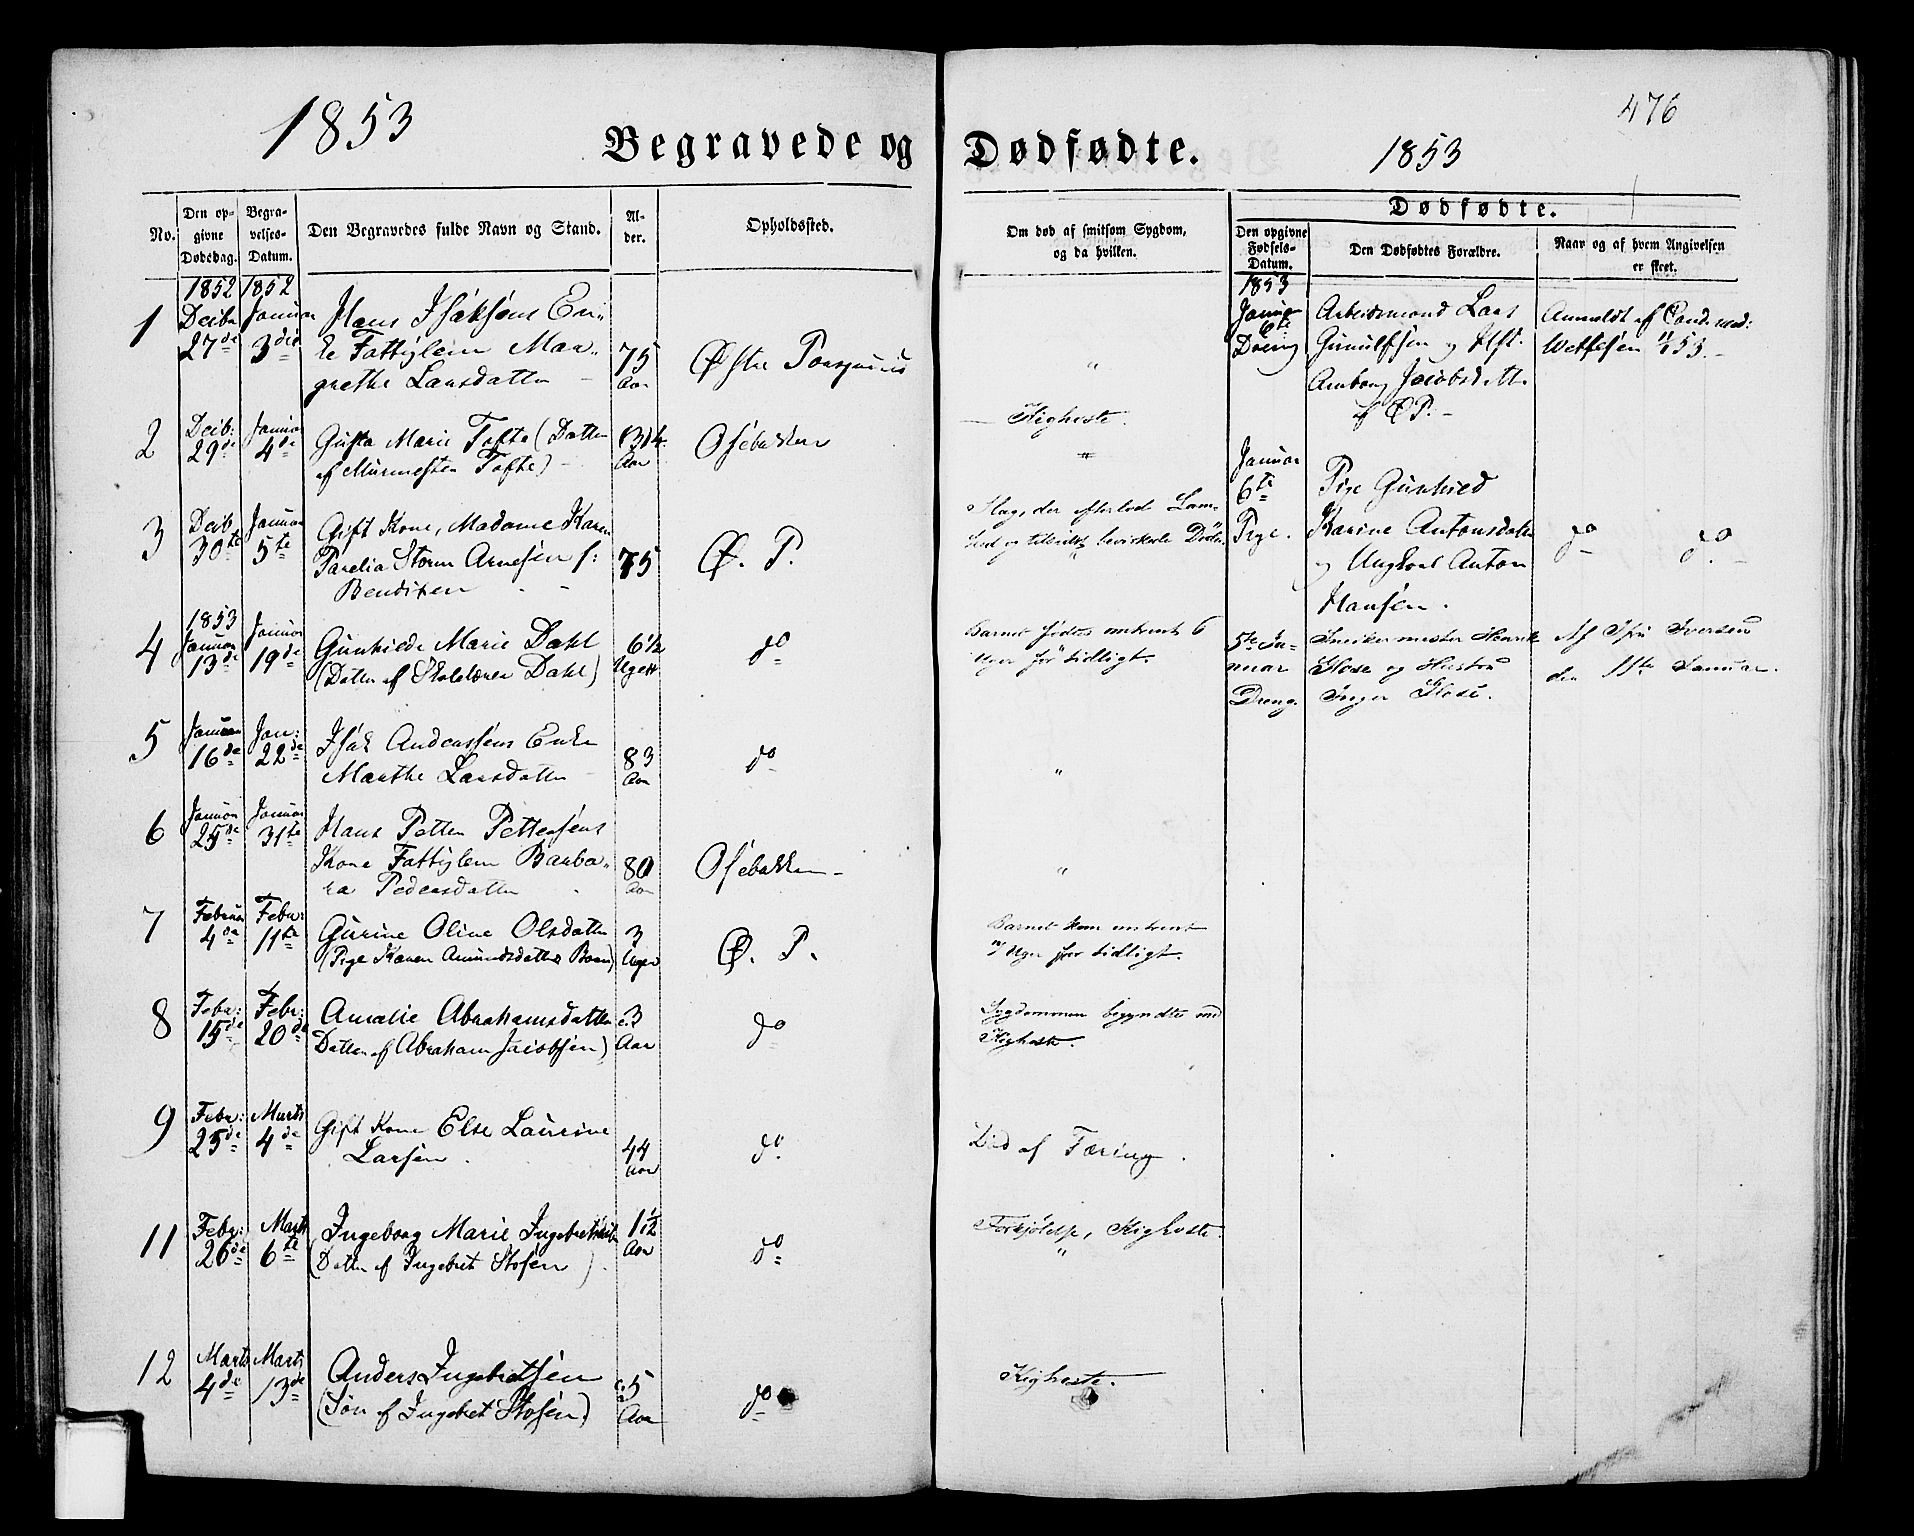 1853
476
Begravede og Dødfødte.
1853
No.
Den op-
givne
Dødsdag.
Begra-
velses-
Datum.
Den Begravedes fulde Navn og Stand.
Al-
der.
Opholdssted.
Om død af smitsom Sygdom,
og da hvilken.
Dødfødte.
Den opgivne
Fødsels-
Datum.
Den Dødfødtes Forældre.
Naar og af hvem Angivelsen
er skeet.
1852 1852
1 Decbr 27de Januar 3die
Hans Isaksens En-
ke Fattiglem Mar-
grethe Larsdatter
75 Aar
Østre Porsgrund
"
2 Decb: 29de Januar 4de
Gusta Marie Tofte (Datter
af Murmester Tofte)
Aar
Osebakken
Kighoste.
3 Decb. 30te Januar 5te
Gift Kone, Madame Karen
Parelia Storm Arnesen f:
Bendixen
75
Ø. P.
Slag, der efterlod Lam-
1853
4 Januar 13de Januar 19de
Gunhilde Marie Dahl
(Datter af Skolelærer Dahl)
6 1/2 Uger
do
Barnet fødtes omtrent 6
Uger for tidligt.
5 Januar 16de Jan: 22de
Isak Anderssens Enke
Marthe Larsdatter
83 Aar
do
"
6 Januar 25de Januar 31te
Hans Petter Pettersens
Kone Fattiglem Barba-
ra Pedersdatter
80 Aar
Osebakken
"
7 Februar 4de Febr: 11te
Gurine Oline Olsdatter
(Pige Karen Amundsdatters Barn)
3 Uger
Ø. P.
Barnet kom omtrent
Uger for tidligt.
8 Febr: 15de Febr: 20de
Amalie Abrahamsdatter
Datter af Abraham Jacobsen)
3 Aar
do
Sygdommen begyndte med
Kighoste.
9 Febr: 25de Marts 4de
Gift Kone Else Laurine
Larsen.
44 Aar
do
Død af Tæring.
11 Febr: 26de Marts 6te
Ingeborg Marie
(Datter af Ingebret Stosen)
1 1/2 Aar
do
Forkjølelse, Kighoste.
"
12 Marts 4de Marts 13de
Anders Ingebretsen
(Søn af Ingebret Stosen)
5 Aar
do
Kighoste.
1853
Januar 6te Dreng
Arbeidsmand Lars
Gunulfsen og
Jacobsdatter
af ØP.
Anmeldt af Cand. med:
53.
Januar 6te Pige.
Pige Gunhild
Karine Antonsdatter
og Ungkarl Anton
Hansen.
do do.
5te Ja-
nuar
Dreng.
Snekkermester Henrik
og Hustru
Inger
Af Fru Iversen
den 11te Januar.